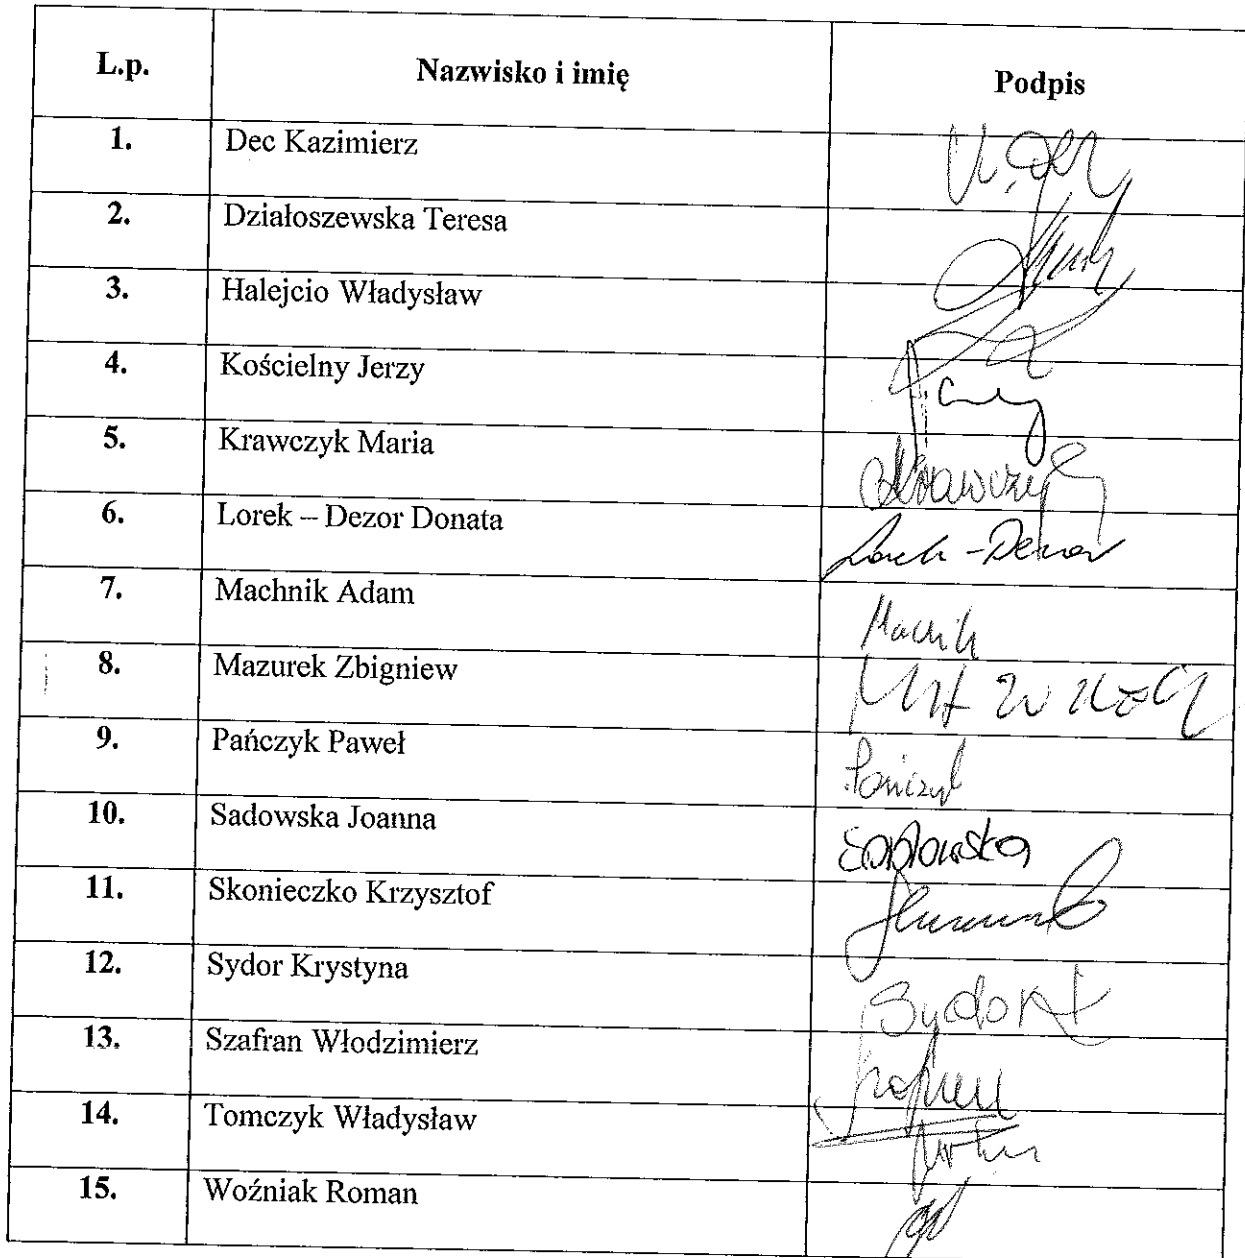 L.p. Nazwisko i imię Podpis
1. Dec Kazimierz
2. Działoszewska Teresa
3. Halejcio Władysław
4. Kościelny Jerzy
5. Krawczyk Maria Krawczyk
6. Lorek – Dezor Donata Lorek - Dezor
7. Machnik Adam Machnik
8. Mazurek Zbigniew
9. Pańczyk Paweł Pańczyk
10. Sadowska Joanna Sadowska
11. Skonieczko Krzysztof
12. Sydor Krystyna Sydor K
13. Szafran Włodzimierz Szafran
14. Tomczyk Władysław
15. Woźniak Roman